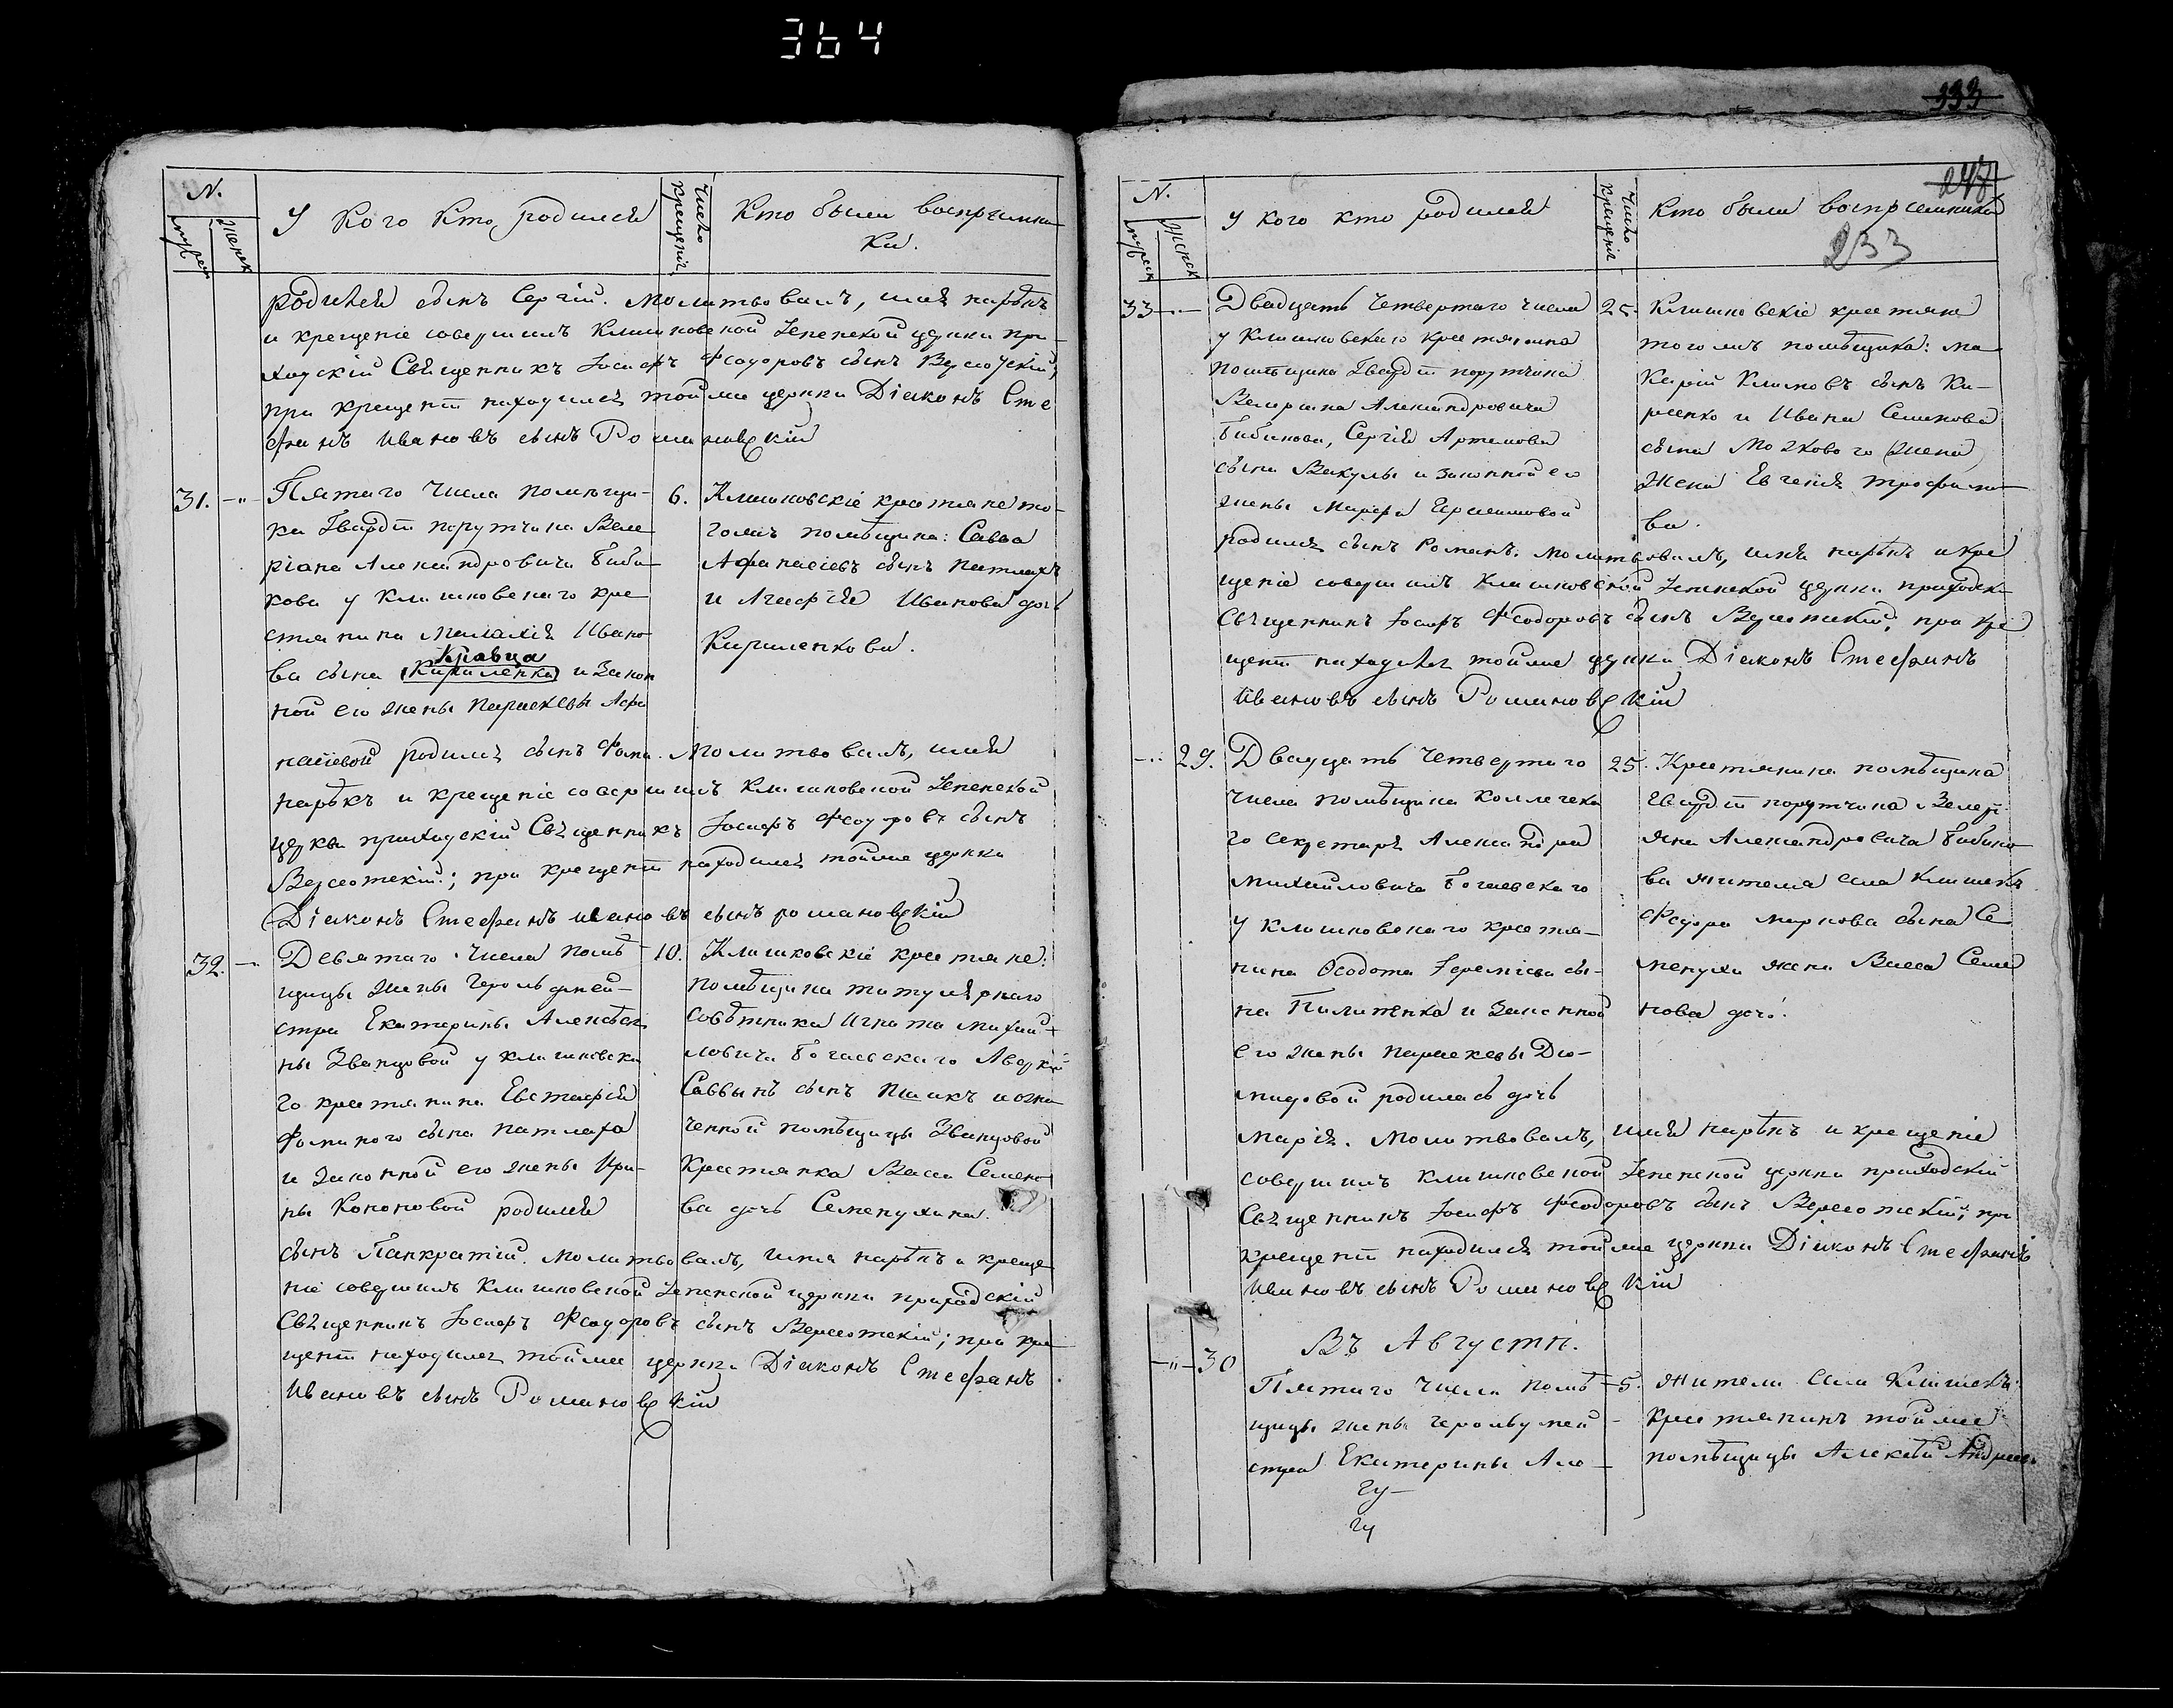 364
333
N.
мужеск
женск
У кого кто родился
число крещенія
Кто были воспріемни-
ки.
родился сынъ Сергій. Молитвовалъ, имя нарѣкъ
и крещеніе совершилъ Клишковской церкви при-
ходскій Священникъ Іосифъ Феодоровъ сынъ
при крещеніи находился тойже церкви Діаконъ Сте
фанъ Ивановъ сынъ Романовскій
31. -"- Пятаго числа помѣщи-
ка Гвардіи порутчика Вале
ріана Александровича Биби-
кова у Клишковскаго кре
стянина Малахія Ивано
Кравца
ва сына Кириленка и закон
ной его жены Параскевы Афа
насіевой родился сынъ Фома. Молитвовалъ, имя
нарѣкъ и крещеніе совершилъ Клишковской
церкви приходскій Священникъ Іосифъ Феодоровъ сынъ
; при крещеніи находился тойже церкви
Діаконъ Стефанъ Ивановъ сынъ Романовскій
6. Клишковскіе крестяне то-
гожъ помѣщика: Савва
Афанасіевъ сынъ Патлахъ
и Агафія Иванова дочь
Кириленкова.
32. -"- Девятаго числа помѣ-
щицы жены Герольдмей-
стра Екатерины Алексѣев
ны Званцовой у клишковска
го крестянина Евстафія
Фомина сына Патлаха
и законной его жены Ири-
ны Кононовой родился
сынъ Панкратій. Молитвовалъ, имя нарѣкъ и креще
ніе совершилъ Клишковской церкви приходскій
Священникъ Іосифъ Феодоровъ сынъ ; при кре
щеніи находился тойже церкви Діаконъ Стефанъ
Ивановъ сынъ Романовскій
10. Клишковскіе крестяне:
помѣщика титулярнаго
совѣтника Игната Михай-
ловича Богаевскаго Аверкій
Саввинъ сынъ и озна
ченной помѣщицы Званцовой
крестянка Васса Семено
ва дочь Семенухина.
247
N.
мужеск
женск
У кого кто родился
число крещенія
Кто были воспріемники
233
33 -"- Двадцать четвертаго числа
у Клишковскаго крестянина
помѣщика Гвардіи порутчика
Валеріана Александровича
Бибикова, Сергія Артемова
сына Вакулы и законной его
жены Марфы
родился сынъ Романъ. Молитвовалъ, имя нарѣкъ и кре
щеніе совершилъ Клишковской церкви приходск
Священникъ Іосифъ Феодоровъ сынъ ; при кре
щеніи находился тойже церкви Діаконъ Стефанъ
Ивановъ сынъ Романовскій
25. Клишковскіе крестяне
тогожъ помѣщика: Ма
карій Климовъ сынъ Ки-
и Ивана Семенова
сына (жена)
жена Евгенія Трофимо
ва.
-"- 29. Двадцать четвертаго
числа помѣщика коллежска
го секретаря Александра
Михайловича Богаевскаго
у клишковскаго крестя-
нина Феодота Іереміева сы-
на и законной
его жены Параскевы Дю-
мидовой родилась дочь
Марія. Молитвовалъ, имя нарѣкъ и крещеніе
совершилъ Клишковской церкви приходскій
Священникъ Іосифъ Феодоровъ сынъ ; при
крещеніи находился тойже церкви Діаконъ Стефанъ
Ивановъ сынъ Романовскій
25. Крестянина помѣщика
Гвардіи порутчика Валері
яна Александровича Бибико
ва жителя села Клишекъ
Феодора Маркова сына Се
менухи жена Васса Семе
нова дочь.
Въ Августѣ.
-"- 30 Пятаго числа помѣ-
щицы жены герольдмей-
стра Екатерины Але-
5. Жители села Клишекъ:
крестянинъ тойже
помѣщицы Алексѣй Андреев